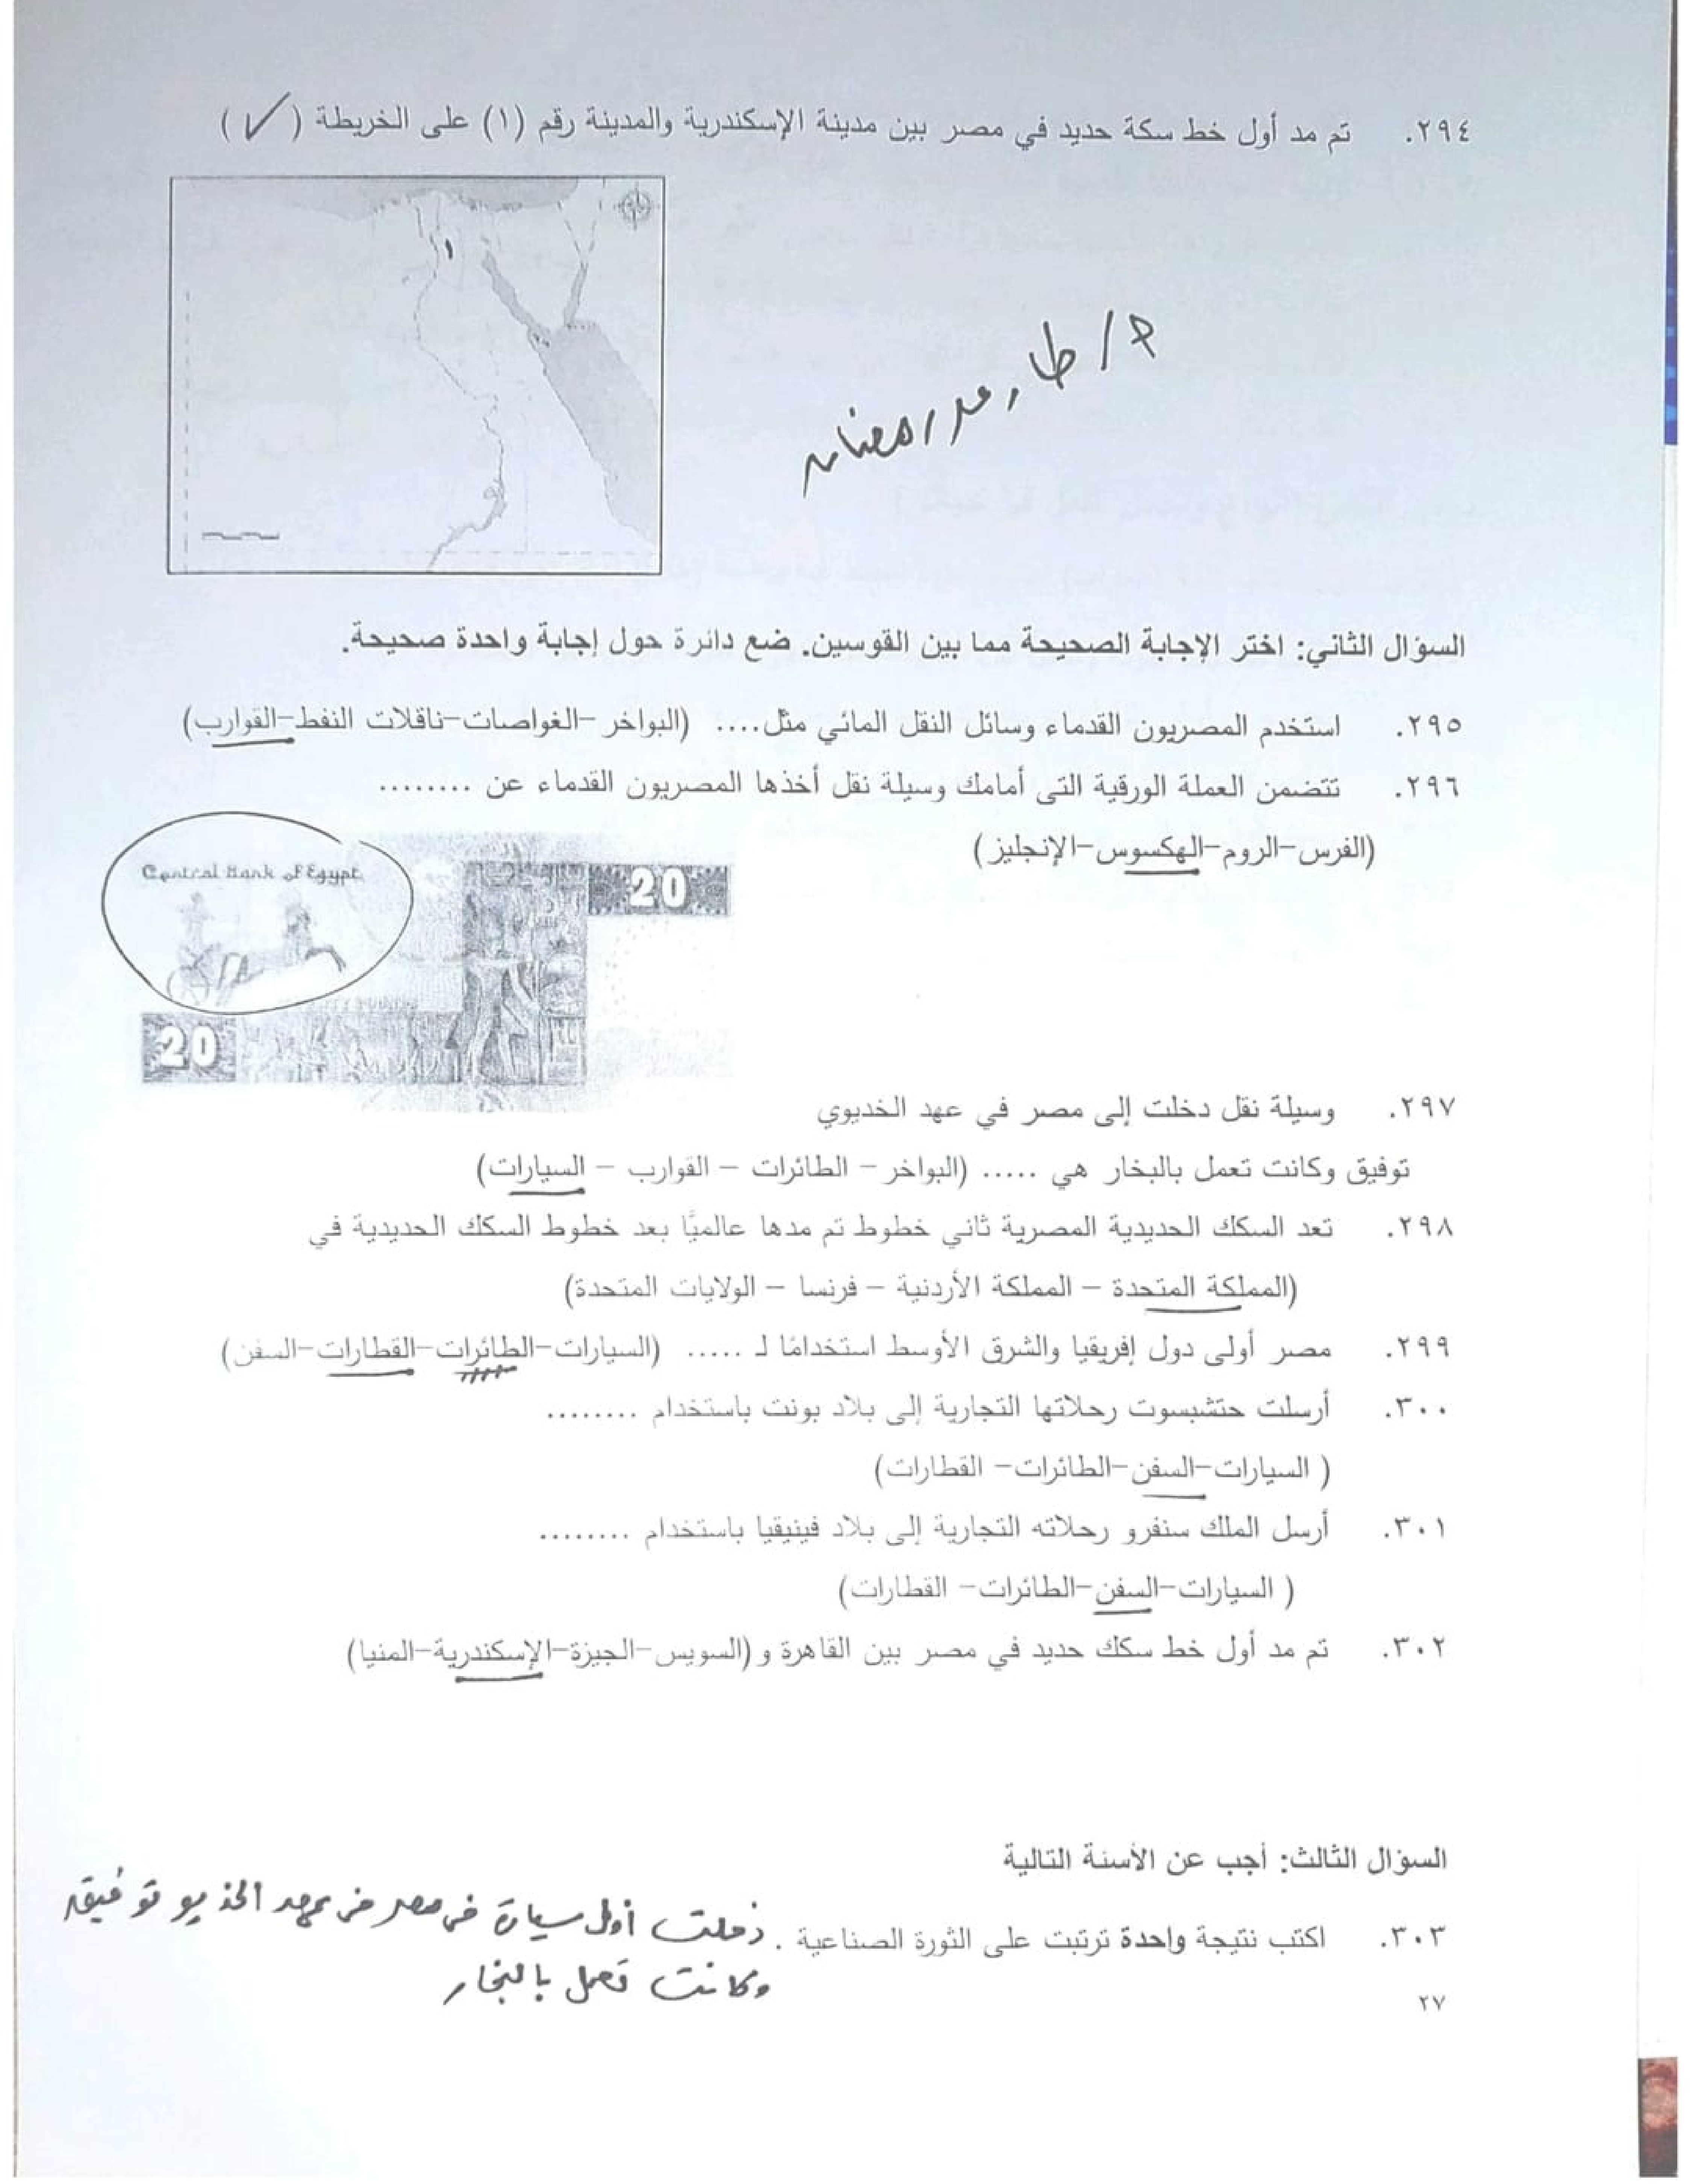 ٢٩٤. تم مد أول خط سكة حديد في مصر بين مدينة الإسكندرية والمدينة رقم (١) على الخريطة (✓)
١
السؤال الثاني: اختر الإجابة الصحيحة مما بين القوسين. ضع دائرة حول إجابة واحدة صحيحة.
٢٩٥. استخدم المصريون القدماء وسائل النقل المائي مثل.... (البواخر -الغواصات-ناقلات النفط-القوارب)
٢٩٦. تتضمن العملة الورقية التى أمامك وسيلة نقل أخذها المصريون القدماء عن ........
(الفرس-الروم-الهكسوس-الإنجليز)
Central Bank of Egypt
20
20
٢٩٧. وسيلة نقل دخلت إلى مصر في عهد الخديوي
توفيق وكانت تعمل بالبخار هي ..... (البواخر - الطائرات - القوارب - السيارات)
٢٩٨. تعد السكك الحديدية المصرية ثاني خطوط تم مدها عالميًا بعد خطوط السكك الحديدية في
(المملكة المتحدة - المملكة الأردنية - فرنسا - الولايات المتحدة)
٢٩٩. مصر أولى دول إفريقيا والشرق الأوسط استخدامًا لـ ..... (السيارات-الطائرات-القطارات-السفن)
٣٠٠. أرسلت حتشبسوت رحلاتها التجارية إلى بلاد بونت باستخدام ........
( السيارات-السفن-الطائرات- القطارات)
٣٠١. أرسل الملك سنفرو رحلاته التجارية إلى بلاد فينيقيا باستخدام ........
( السيارات-السفن-الطائرات- القطارات)
٣٠٢. تم مد أول خط سكك حديد في مصر بين القاهرة و (السويس-الجيزة-الإسكندرية-المنيا)
السؤال الثالث: أجب عن الأسنة التالية
٣٠٣. اكتب نتيجة واحدة ترتبت على الثورة الصناعية . دخلت أول سيارة في مصر في عهد الخديو توفيق
وكانت تعمل بالبخار
٢٧